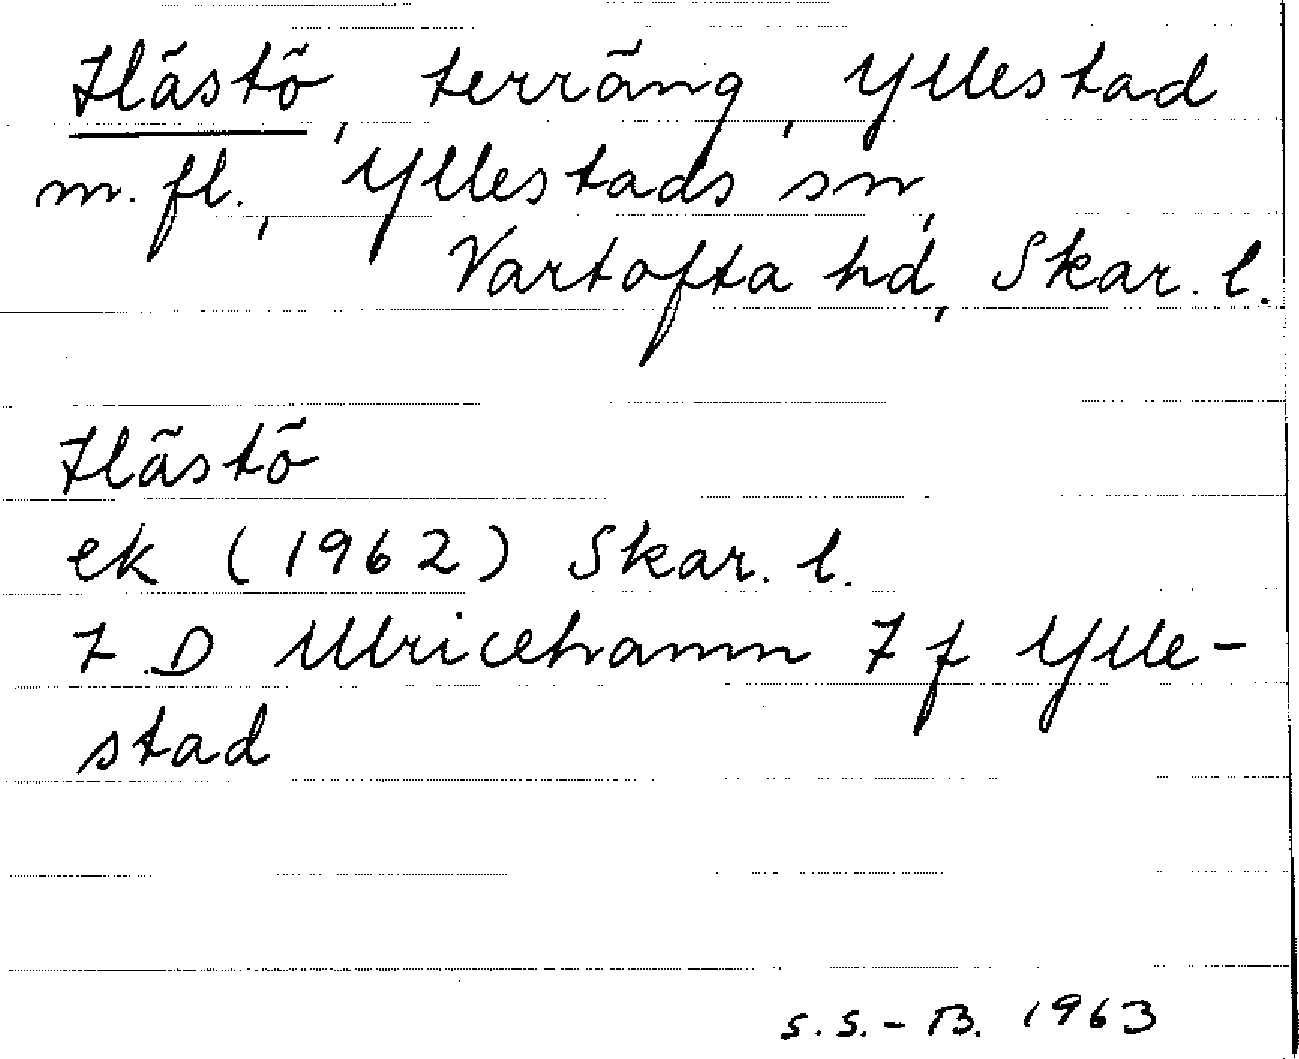 Hästö, terräng, Yllestad
m. fl., Yllestads sn,
Vartofta hd, Skar. l.
Hästö
ek (1962) Skar. l.
7 D Ulricehamn 7 f Ylle-
stad
S.S.-B. 1963